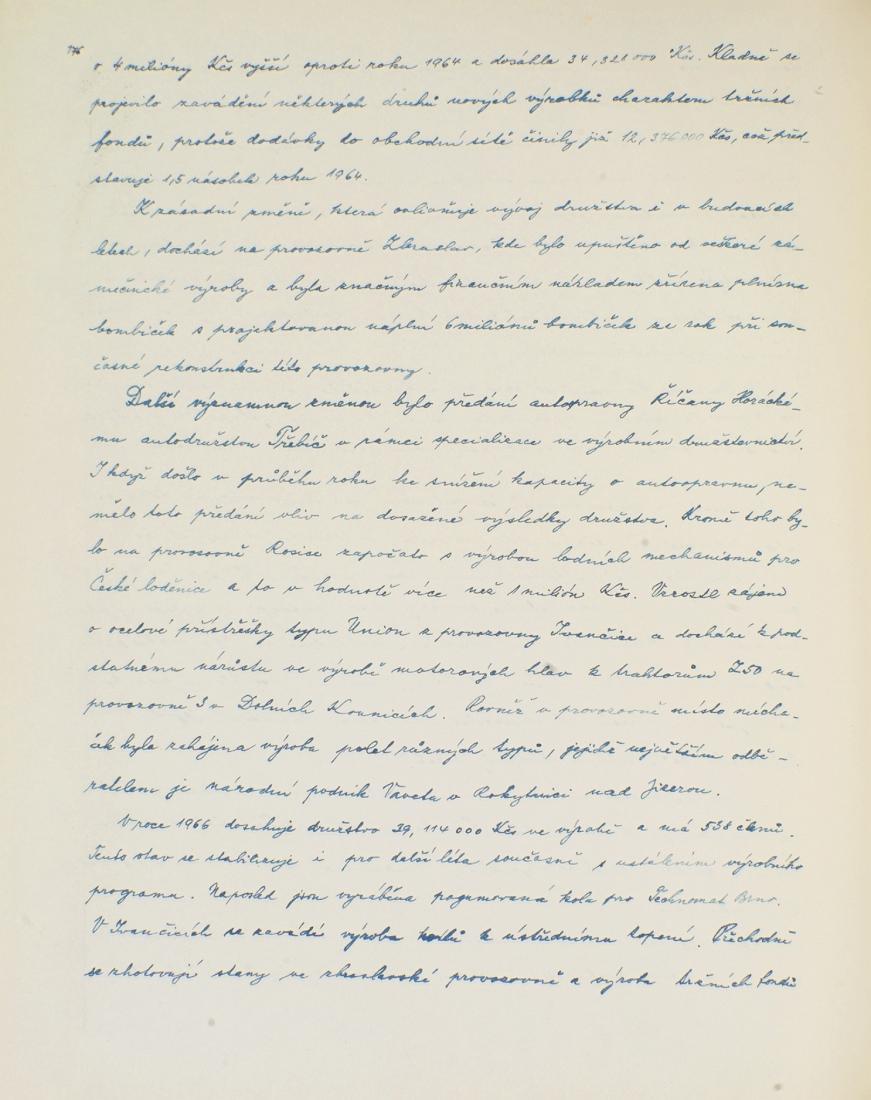 176
o 4 milióny Kčs vyšší oproti roku 1964 a dosáhla 34,321 000 Kčs. Kladně se
projevilo zavádění některých druhů nových výrobků charakteru tržních
fondů, protože dodávky do obchodní sítě činily již 12,376 000 Kčs, což před-
stavuje 1,5 násobek roku 1964.
K zásadní změně, která ovlivňuje vývoj družstva i v budoucích
letech, dochází na provozovně Zbraslav, kde bylo upuštěno od veškeré zá-
mečnické výroby a byla značným finančním nákladem zřízena plnírna
bombiček s projektovanou náplní 6 miliónů bombiček za rok při sou-
časné rekonstrukci této provozovny.
Další významnou změnou bylo předání autopravny Říčany Horácké-
mu autodružstvu Třebíč v rámci specializace ve výrobním družstevnictví.
I když došlo v průběhu roku ke snížení kapacity o autoopravnu, ne-
mělo toto předání vliv na dosažené výsledky družstva. Kromě toho by-
lo na provozovně Rosice započato s výrobou lodních mechanismů pro
České loděnice a to v hodnotě více než 1 milión Kčs. Vzrostl zájem
o ocelové přístřešky typu Union z provozovny Ivančice a dochází k pod-
statnému nárůstu ve výrobě motorových hlav k traktorům Z50 na
provozovně 3 v Dolních Kounicích. Rovněž v provozovně místo mícha-
ček byla zahájena výroba palet různých typů, jejichž největším odbě-
ratelem je národní podnik Vaveta v Rokytnici nad Jizerou.
V roce 1966 dosahuje družstvo 39,114 000 Kčs ve výrobě a má 538 členů.
Tento stav se stabilizuje i pro další léta současně s ustálením výrobního
programu. Naposled jsou vyráběna pogumovaná kola pro Technomat Brno.
V Ivančicích se zavádí výroba kotlů k ústřednímu topení. Přechodně
se zhotovují stany ve zbraslavské provozovně a výroba tržních fondů